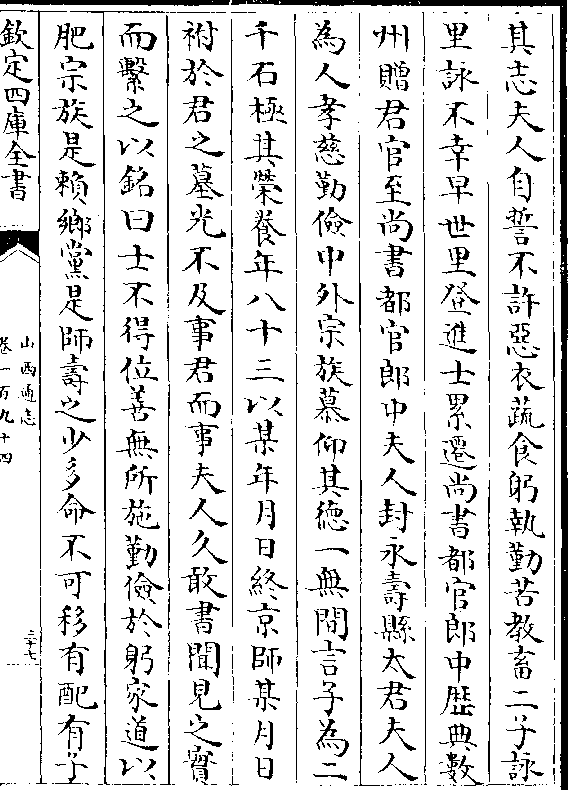 其志夫人自誓不許惡衣蔬食躬執勤苦教畜二子詠
里詠不幸早世里登進士累遷尚書都官郎中歴典數
州贈君官至尚書都官郎中夫人封永壽縣太君夫人
為人孝慈勤儉中外宗族慕仰其徳一無間言子為二
千石極其榮養年八十三以某年月日終京師某月日
祔於君之墓光不及事君而事夫人久敢書聞見之實
而繫之以銘曰士不得位善無所施勤儉於躬家道以
肥宗族是賴鄉黨是師壽之少多命不可移有配有子
欽定四庫全書
山西通志
卷一百九十四
三十七